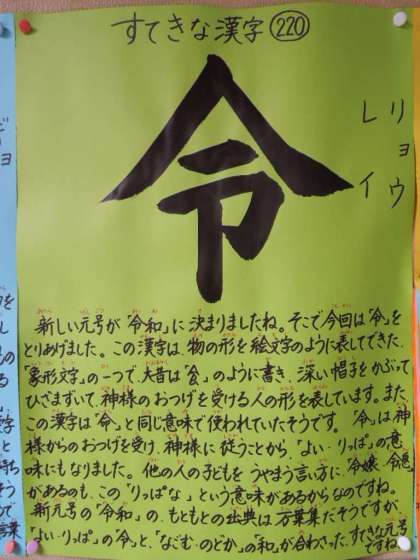 すてきな漢字 220
令
リョウ
レイ
新しい元号が「令和」に決まりましたね。そこで今回は「令」を
とりあげました。この漢字は、物の形を絵文字のように表してできた、
「象形文字」の一つで、大昔は「
」のように書き、深い帽子をかぶって
ひざまずいて、神様のおつげを受ける人の形を表しています。また
この漢字は「命」と同じ意味で使われていたそうです。「令」は神
様からのおつげを受け、神様に従うことから、「よい・りっぱ」の意
味にもなりました。他の人の子どもをうやまう言い方に、令嬢、令息
があるのも、この「りっぱな」という意味があるからなのですね。
新元号の「令和」の、もともとの出典は万葉集だそうですが、
「よい・りっぱ」の「令」と、「なごむ・のどか」の「和」が合わさった、すてきな元号
ですね